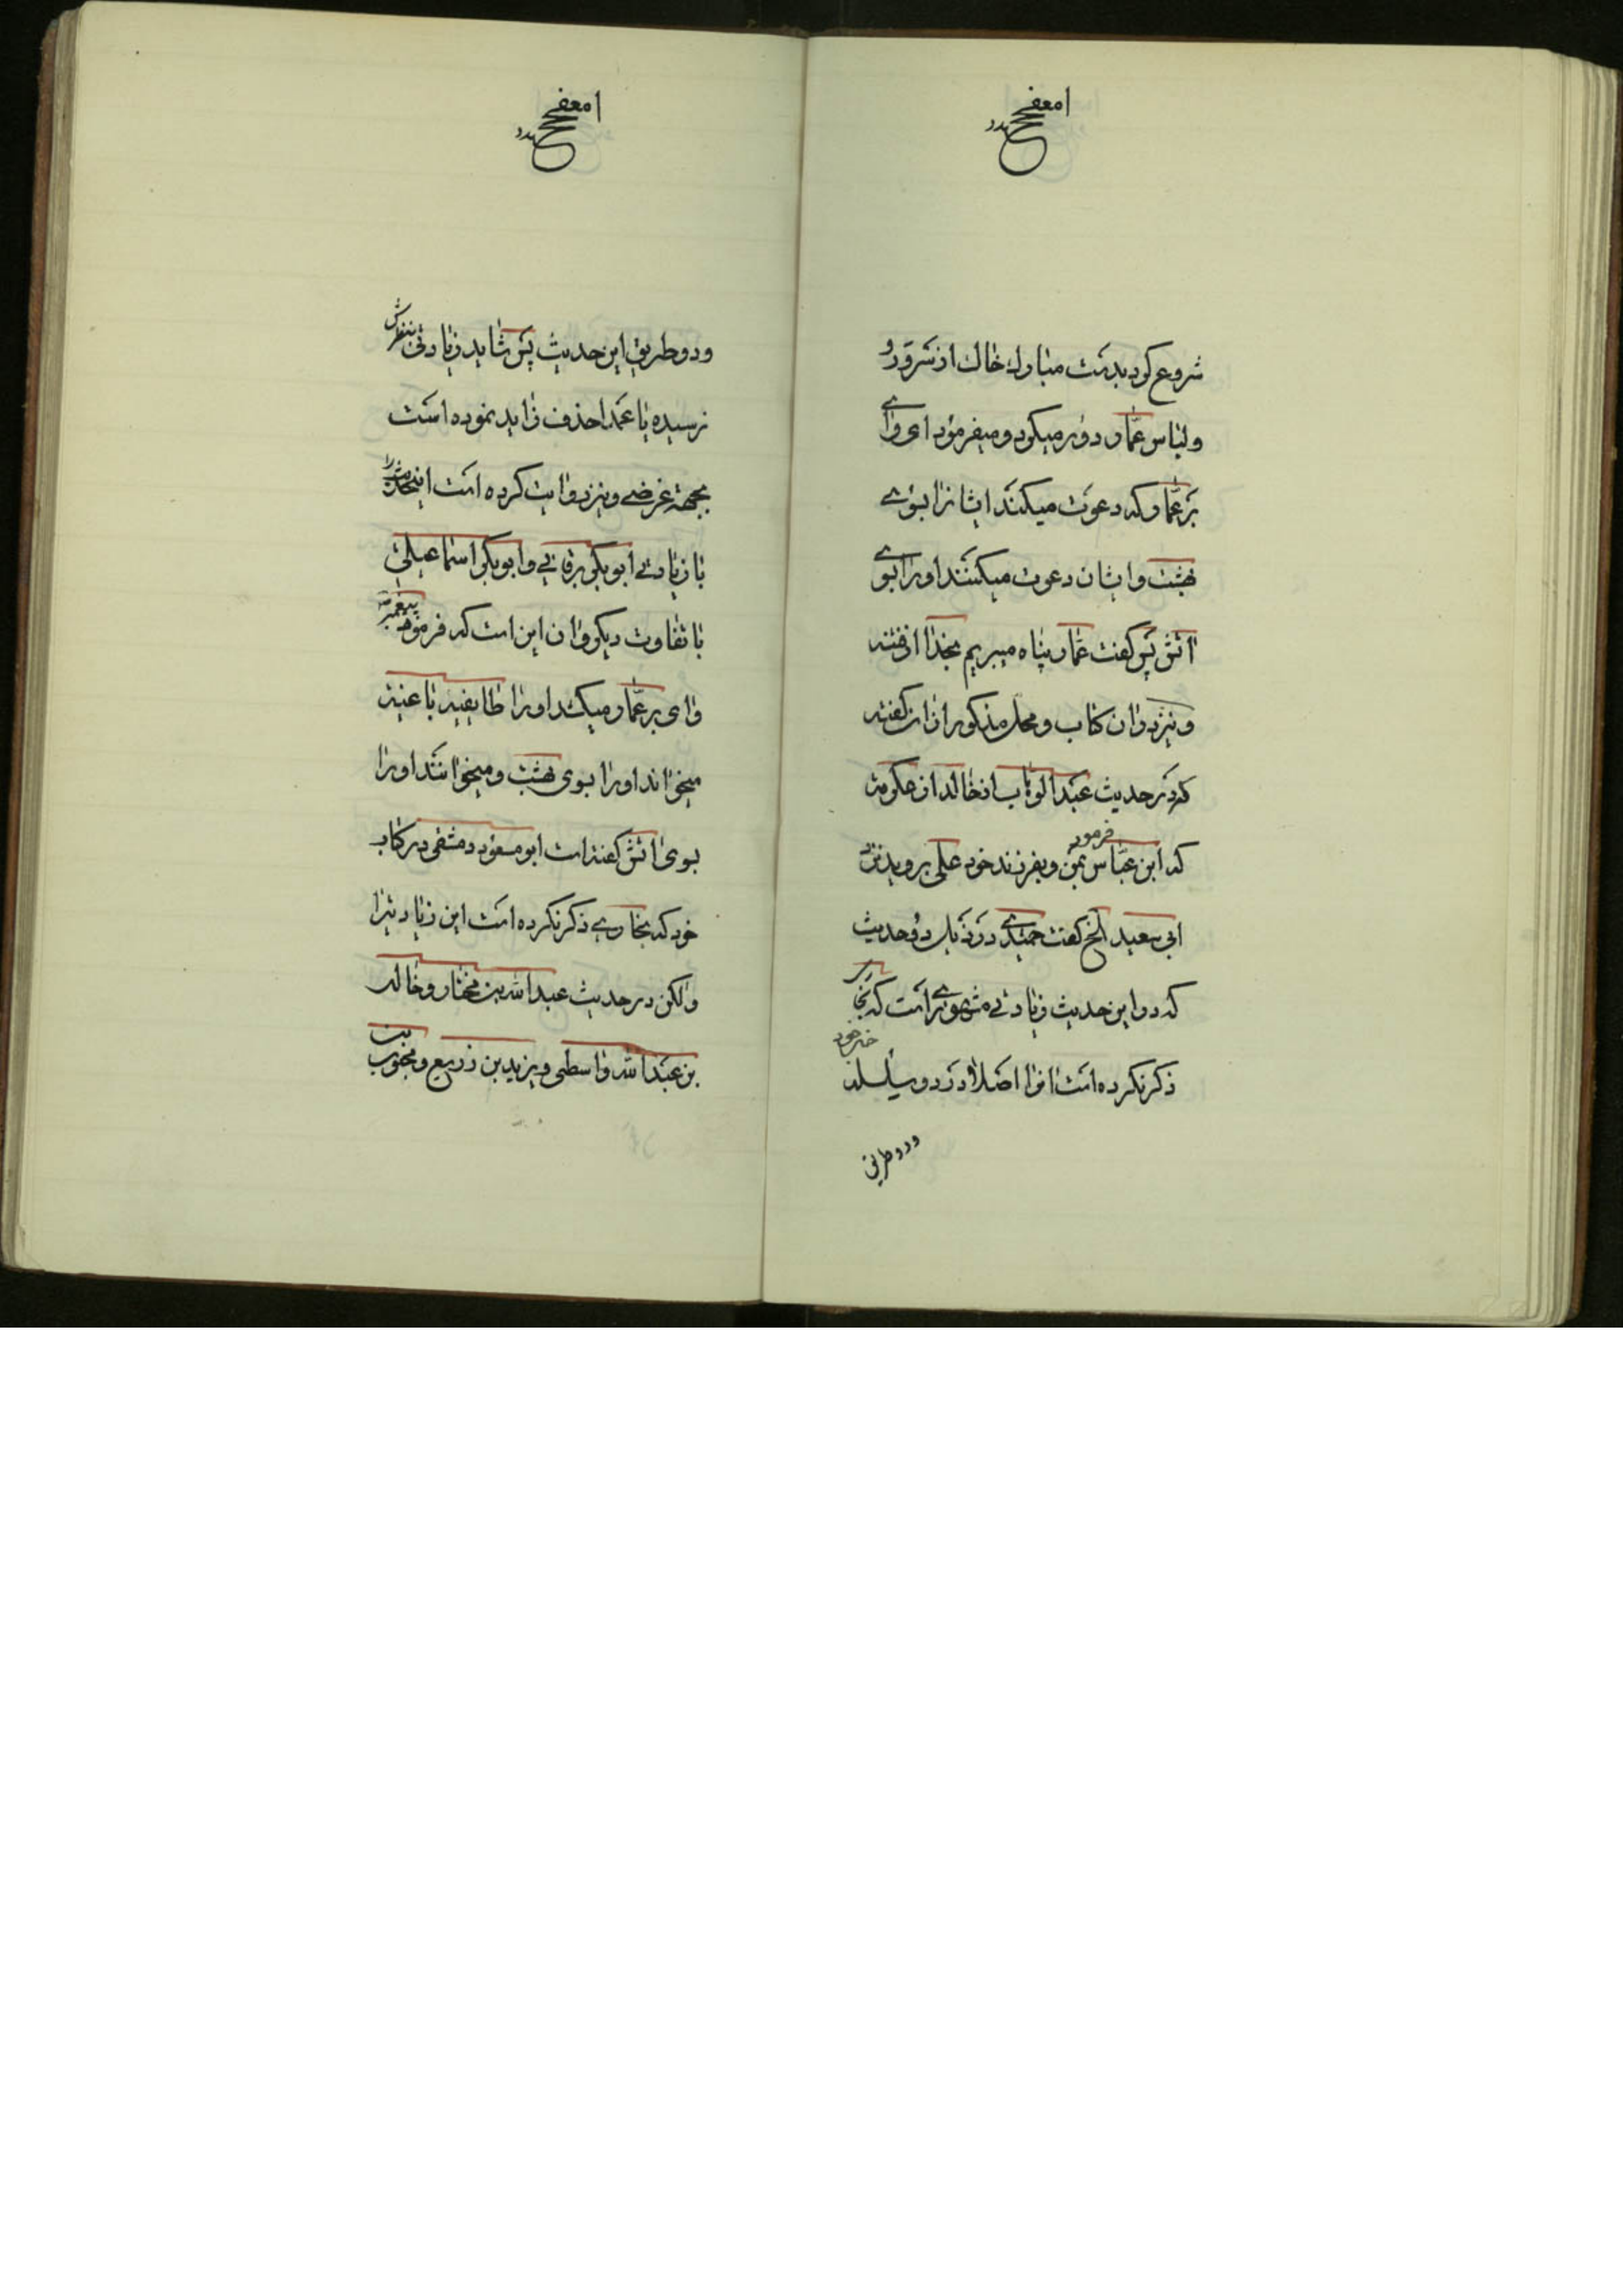 شروع کرد بدست مبارک خاک از سر و رو
و لباس عمار دور میکرد و میفرمود ای وای
بر عمار که دعوت میکند ایشانرا بسوی
بهشت و ایشان دعوت میکنند او را بسوی
اتش پس گفت عمار پناه میبریم بخدا از فتنه
و نیز در ان کتاب و محل مذکور از ان گفته
که در حدیث عبدالوهاب از خالد از عکرمه
که ابن عباس فرمود بمن و بفرزند خود علی بروید نزد
ابی سعید الخ گفت حمیدی در ذیل دو حدیث
که در این حدیث زیادتی مشهوری است که بخاری
ذکر نکرده است انرا اصلا در دو سلسله
و دو طریق
و دو طریق این حدیث پس شاید زیادتی بنظرش
نرسیده یا عمدا حذف زاید نموده است
بجهة غرضی و نیز روایت کرده است اینحدیث را
با زیادتی ابو بکر برقانی و ابوبکر اسماعیلی
با تفاوت دیگر و ان این است که فرمود پیغمبر
وای بر عمار میکشد او را طایفه باغیه
میخواند او را بسوی بهشت و میخوانند او را
بسوی اتش گفته است ابو مسعود دمشقی در کتاب
خود که بخاری ذکر نکرده است این زیاد تیرا
ولکن در حدیث عبدالله بن مختار و خالد
بن عبدالله واسطی و یزید بن زریع و محبوب بن